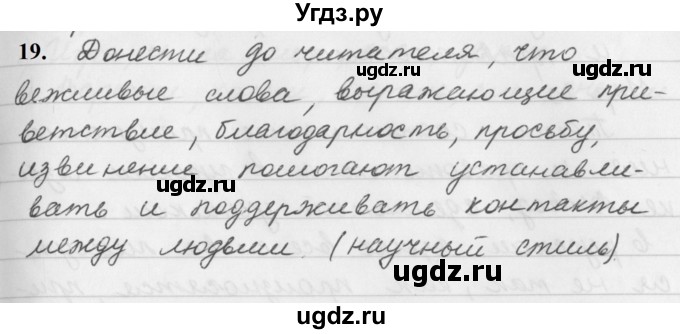 Угдз.ру
19. Донести до читателя, что
ugdz.ru ugdz.ru
вежливые слова, выражающие при-
ветствие, благодарность, просьбу,
ugdz.ru
извинение помогают устанавли-
ugdz.ru
вать и поддерживать контакты
ugdz.ru
между людьми. (научный стиль).
ugdz.ru